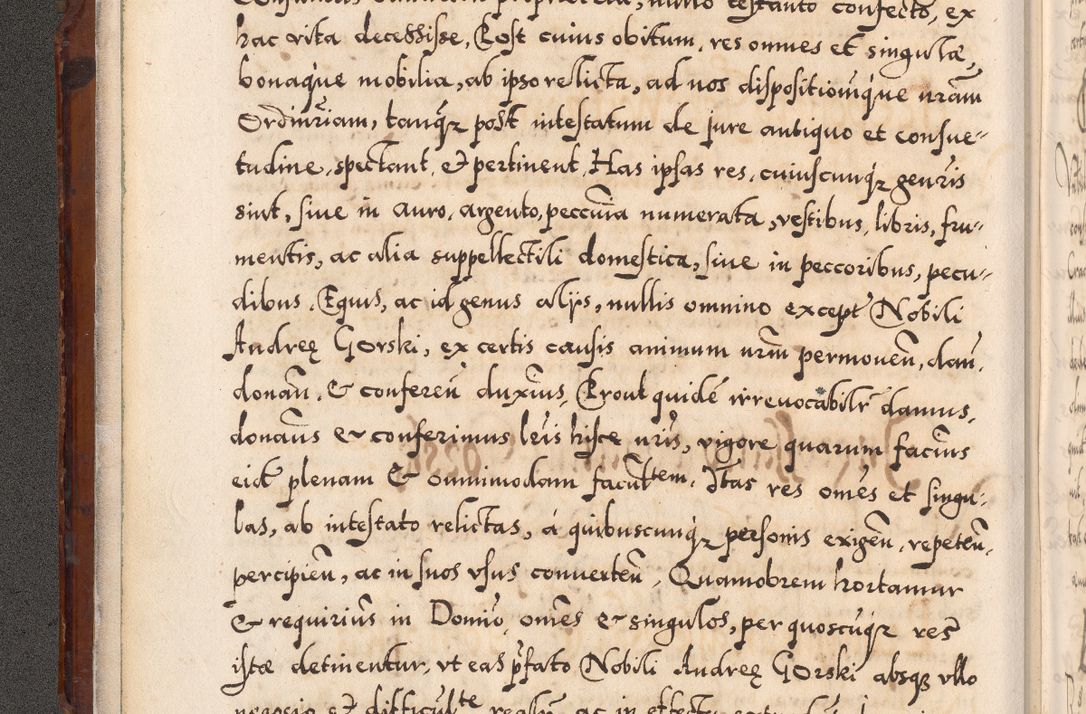 hac vita decessisse, Post cuius obitum, res omnes et singulæ,
bonaq́ue mobilia, ab ipso relicta, ad nos dispositioniq́ue nr̃am
Ordinr̃iam, tanq̃ȝ post intestatum de jure antiquo et consue-
tudine, spectant, & pertinent, Has ipsas res, cuiuscunq́ȝ gener̃is
sint, siue in auro, argento, peccũia numerata, vestibus, libris, fru-
mentis, ac alia suppellectili domestica, siue in peccoribus, pecu-
dibus, Equis, ac id genus alijs, nullis omnino except̃ Nobili
Andreę Gorski, ex certis causis animum nrm̃ permoueñ, dañ,
donañ, & confereñ duxim̃us, Prout quidẽ irreuocabilr̃ damus,
donam̃us & conferimus lr̃is hisce nr̃is, vigore quarum facim̃us
eid̃ plenam & omnimodam facul̃tem, Itas res om̃es et singu-
las, ab intestato relictas, á quibuscunq́ȝ personis exigeñ, repeteñ,
percipieñ, ac in suos vsus conuerteñ, Quamobrem hortamur
& requirim̃us in Domĩo, om̃es & singulos, per quoscũqȝ res
istæ detinentur, vt eas p̃fato Nobili Andreę Gorski absqȝ vllo